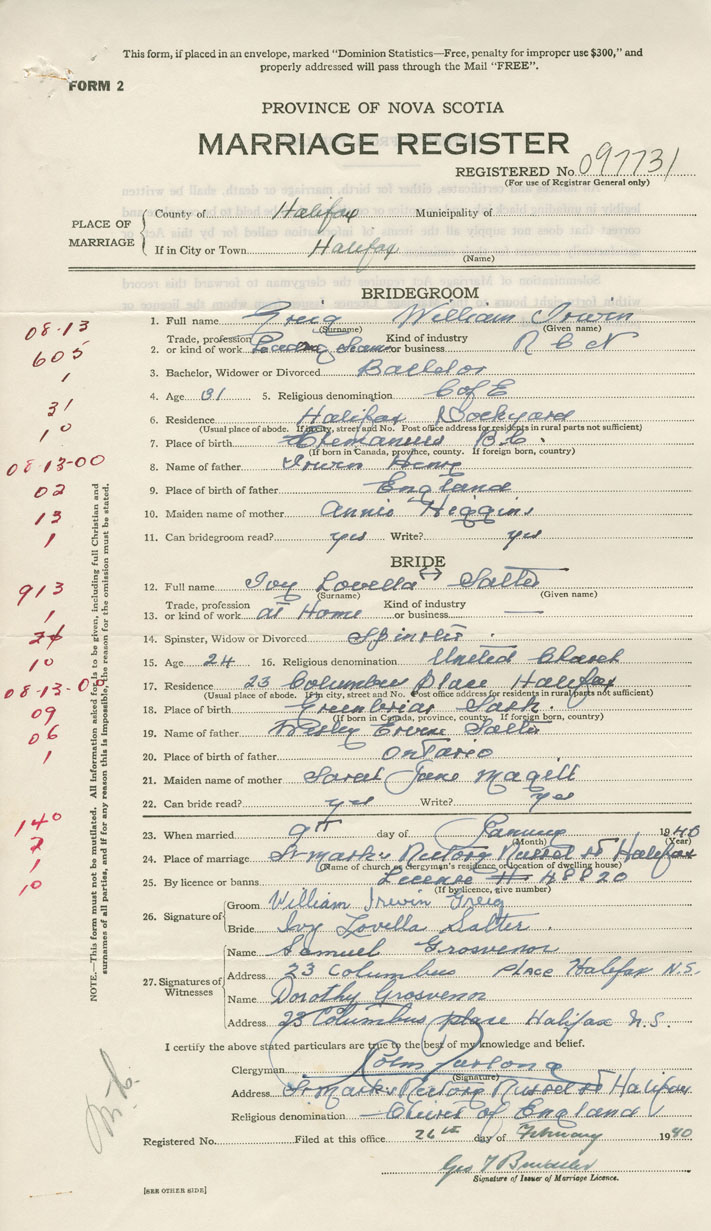 This form, if placed in an envelope, marked "Dominion Statistics—Free, penalty for improper use $300," and
properly addressed will pass through the Mail "FREE".
FORM 2
PROVINCE OF NOVA SCOTIA
MARRIAGE REGISTER
REGISTERED No. 097731
(For use of Registrar General only)
PLACE OF MARRIAGE
County of Halifax Municipality of
If in City or Town Halifax
(Name)
BRIDEGROOM
08-13
1. Full name Greig William Irwin
(Surname) (Given name)
605
2. Trade, profession or kind of work Leading Kind of industry or business R C N
1
3. Bachelor, Widower or Divorced Bachelor
4. Age 31 5. Religious denomination C of E
31
6. Residence Halifax Dockyard
(Usual place of abode. If in city, street and No. Post office address for residents in rural parts not sufficient)
10
7. Place of birth Chemanius B.C.
(If born in Canada, province, county. If foreign born, country)
08-13-00
8. Name of father Irwin Henry
02
9. Place of birth of father England
13
10. Maiden name of mother Annie Higgins
1
11. Can bridegroom read? yes Write? yes
BRIDE
913
12. Full name Ivy Lovella ↔ Salter
(Surname) (Given name)
1
13. Trade, profession or kind of work at Home Kind of industry or business —
14. Spinster, Widow or Divorced Spinster
10
15. Age 24 16. Religious denomination United Church
08-13-00
17. Residence 23 Columbus Place Halifax
(Usual place of abode. If in city, street and No. Post office address for residents in rural parts not sufficient)
09
18. Place of birth Greenbriar Sask.
(If born in Canada, province, county. If foreign born, country)
06
19. Name of father Wesley Salter
1
20. Place of birth of father Ontario
21. Maiden name of mother Sarah Jane Magill
22. Can bride read? yes Write? yes
140
23. When married 9th day of January 1940
(Month) (Year)
2
24. Place of marriage St Marks Rectory Russel St Halifax
(Name of church or clergyman's residence or location of dwelling house)
1
10
25. By licence or banns License # 48820
(If by licence, give number)
26. Signature of
Groom William Irwin Greig
Bride Ivy Lovella Salter.
27. Signatures of Witnesses
Name Samuel Grosvenor
Address 23 Columbus Place Halifax N.S.
Name Dorothy Grosvenor
Address 23 Columbus place Halifax N.S.
I certify the above stated particulars are true to the best of my knowledge and belief.
Clergyman
(Signature)
Address St Marks Rectory Russel St Halifax
Religious denomination Church of England
Registered No. Filed at this office 26th day of February 1940
Geo T
Signature of Issuer of Marriage Licence.
[SEE OTHER SIDE]
NOTE.—This form must not be mutilated. All information asked for is to be given, including full Christian and
surnames of all parties, and if for any reason this is impossible, the reason for the omission must be stated.